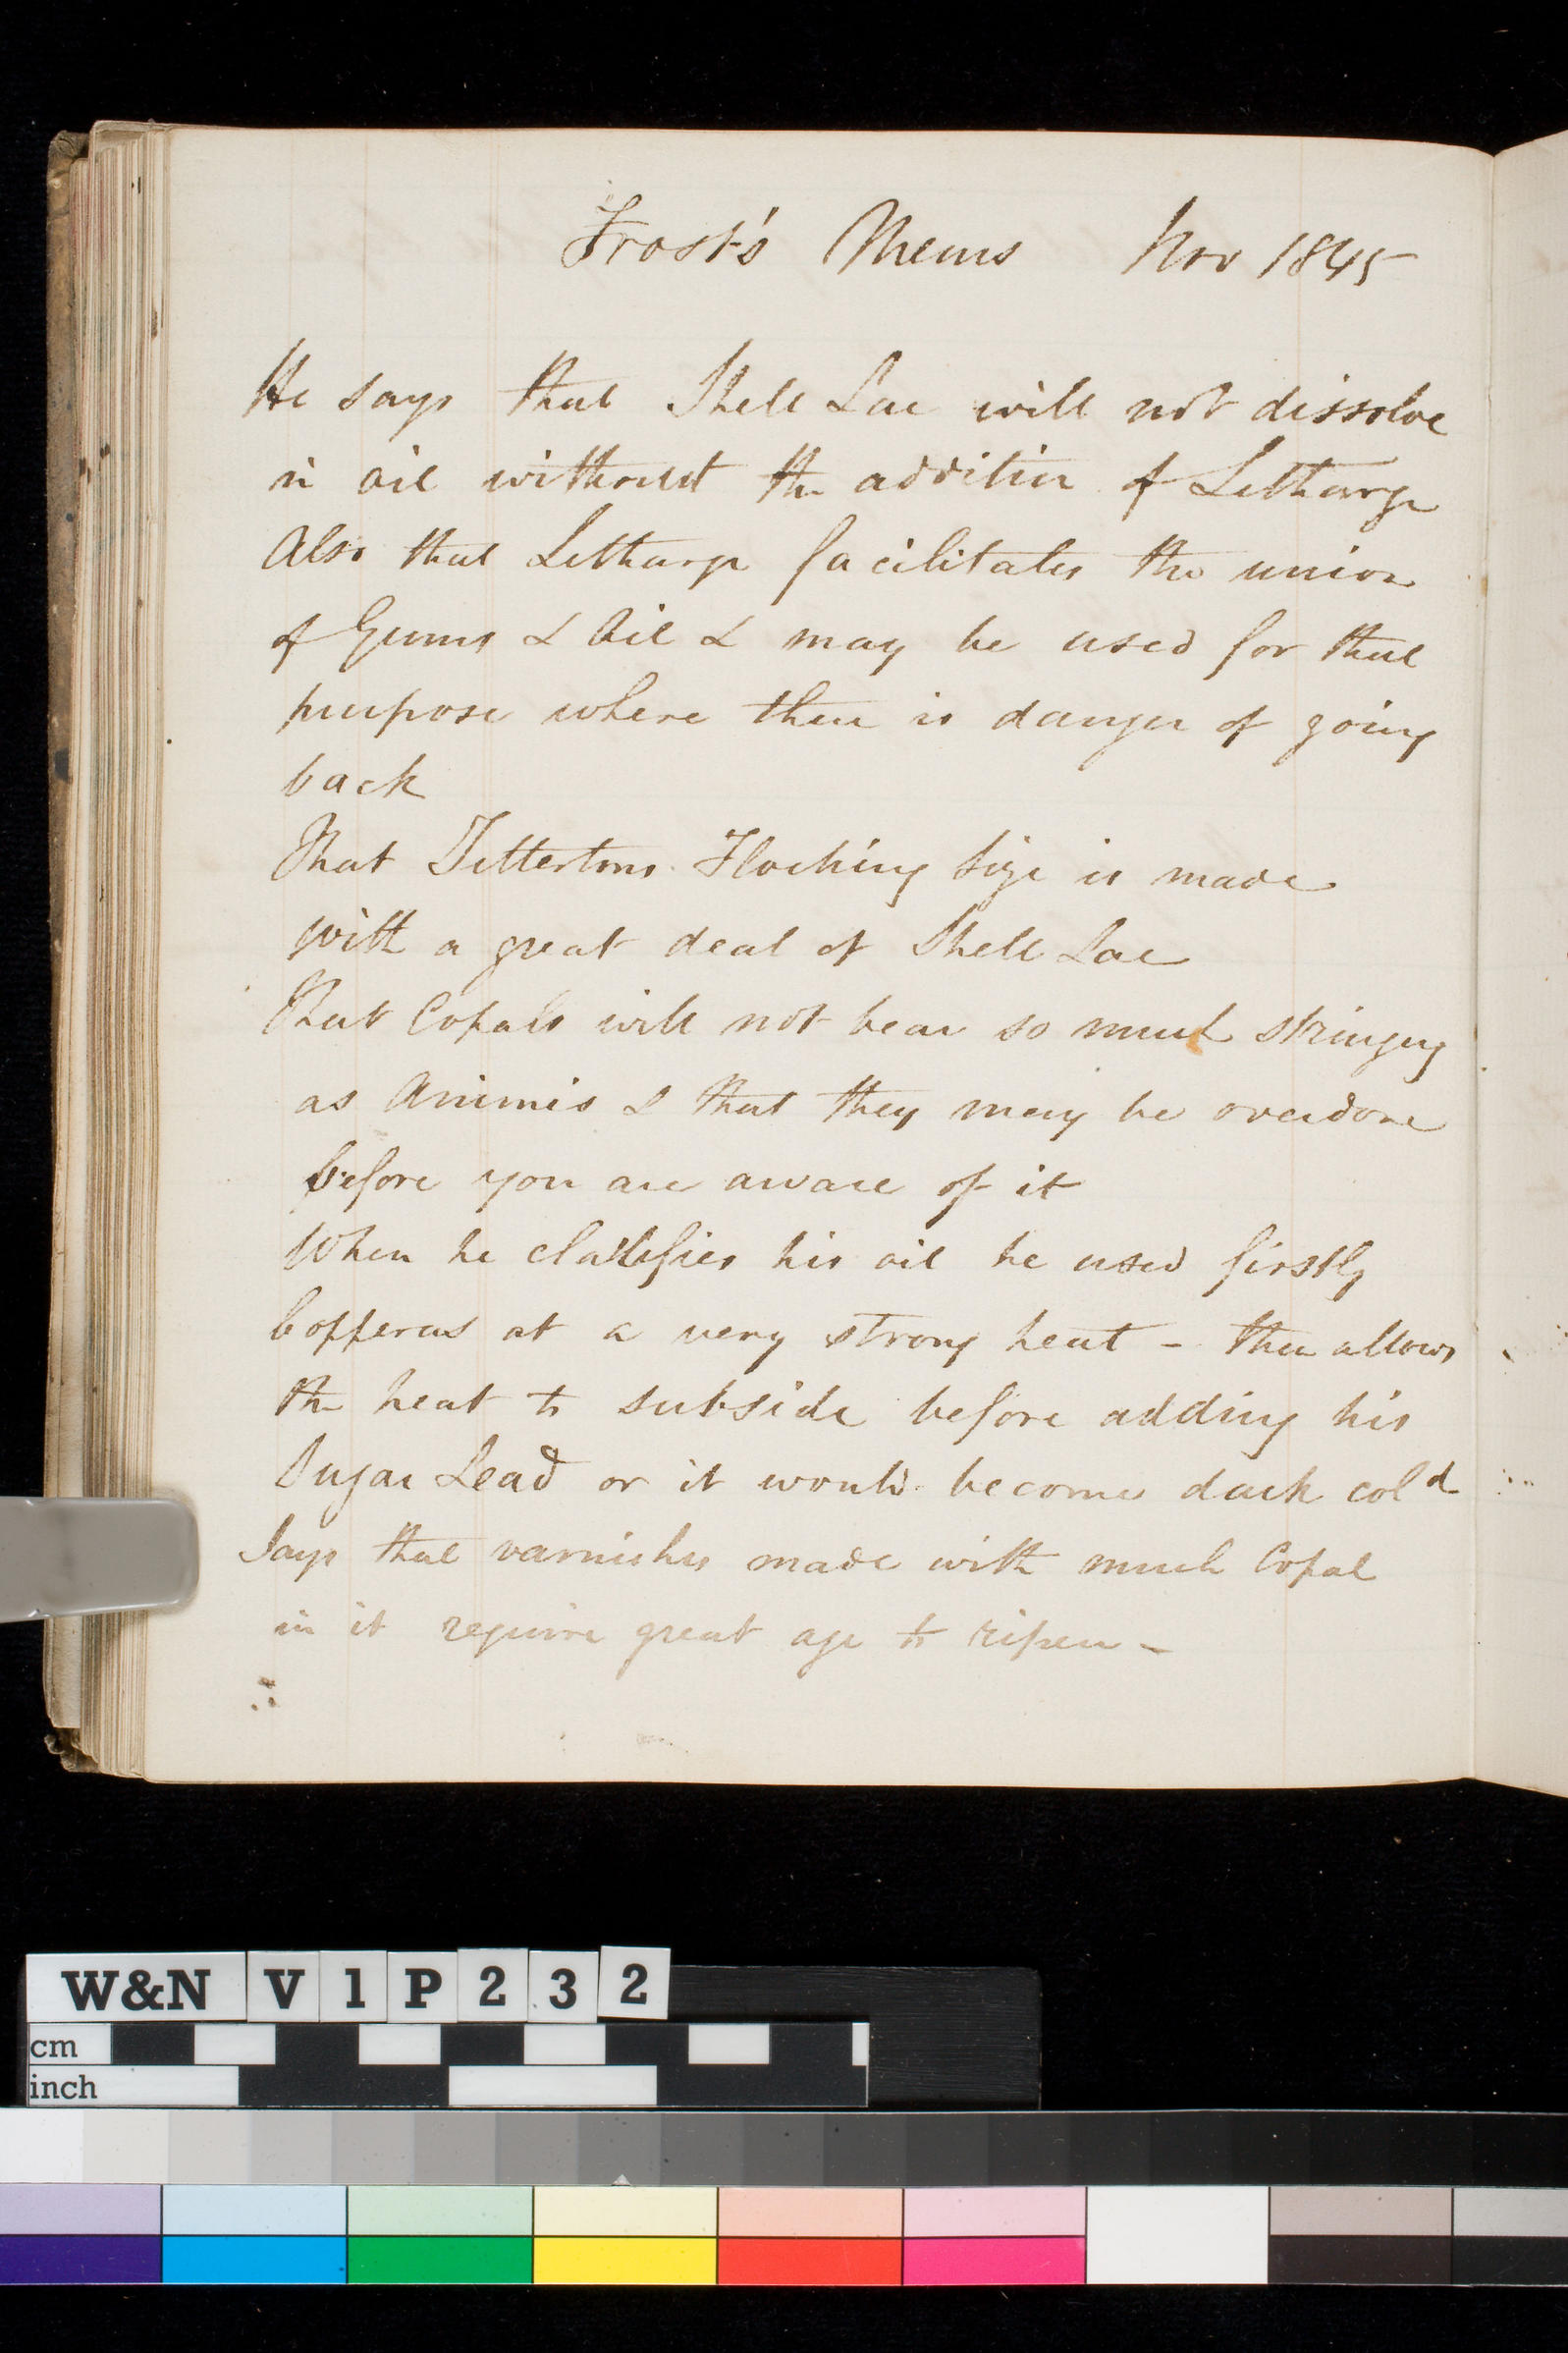 Frost's Mems Nov 1845
He says that Shell Lac will not dissolve
in oil without the addition of Letharge
Also that Letharge facilitates the union
of Gums & Oil & may be used for that
purpose where there is danger of going
back
That Tettertons Flocking Size is made
with a great deal of Shell Lac
that Copals will not bear so much stringing
as Animis & that they may be overdone
before you are aware of it
When he clarifies his oil he used firstly
Copperas at a very strong heat - then allows
the heat to subside before adding his
Sugar Lead or it would become dark cold
Says that varnishes made with much Copal
in it require great age to ripen -
W&N V1P232
cm
inch